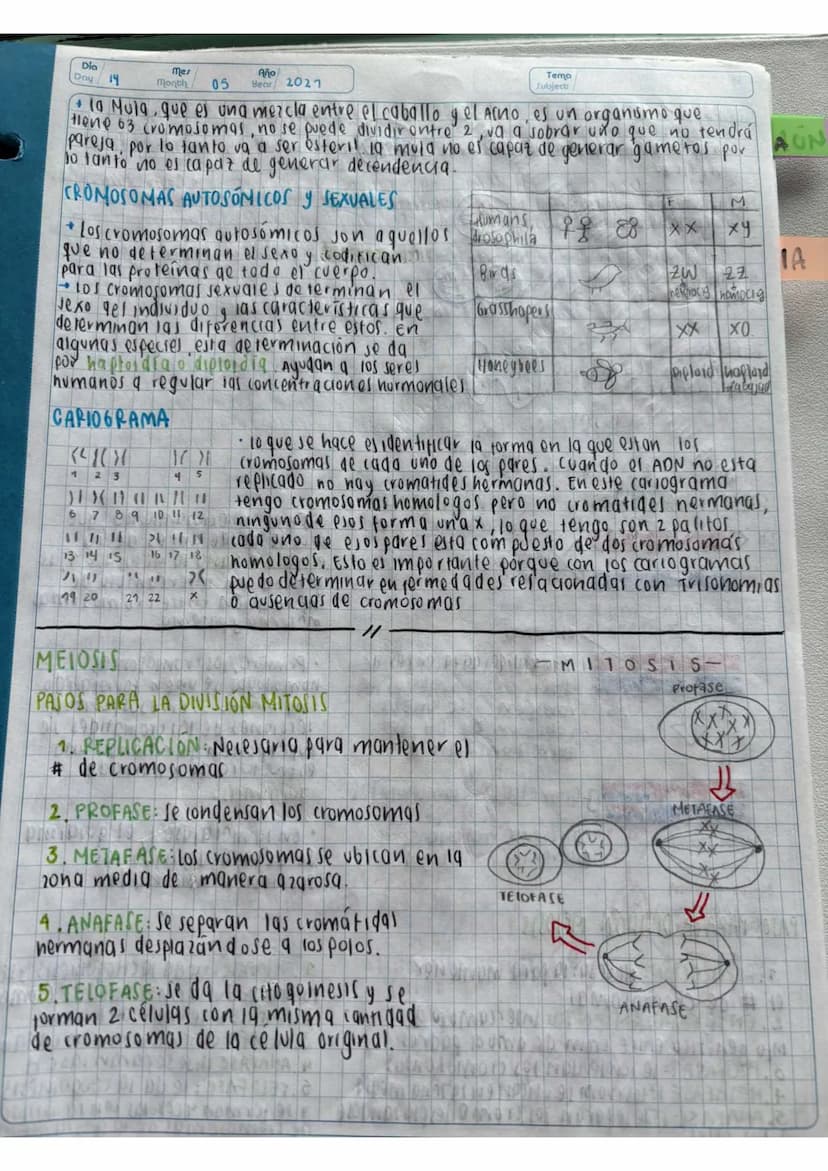 Día
Day 14
Mes
Month 05
Año
Year 2021
Tema
Subject:
+ la Mula, que es una mezcla entre el caballo y el Asno, es un organismo que
tiene 63 cromosomas, no se puede dividir entre 2, va a sobrar uno que no tendrá
pareja, por lo tanto va a ser esteril. la mula no es capaz de generar gametos por
lo tanto no es capaz de generar decendencia.
CROMOSOMAS AUTOSÓMICOS Y SEXUALES
+ Los cromosomas autosómicos son aquellos
que no determinan el sexo y codifican
para las proteínas de todo el cuerpo.
→ Los cromosomas sexuales determinan el
sexo del individuo y las características que
determinan las diferencias entre estos. En
algunas especies, esta determinación se da
por haploidia o diploidia. Ayudan a los seres
humanos a regular las concentraciones hormonales
F M
Humans, drosophila XX XY
Birds ZW ZZ
Grasshopers XX XO
Honeybees Diploid Haploid
AÓN
IA
CARIOGRAMA
1 2 3 4 5
6 7 8 9 10 11 12
13 14 15 16 17 18
19 20 21 22 X
· lo que se hace es identificar la forma en la que estan los
cromosomas de cada uno de los pares. Cuando el ADN no esta
replicado no hay cromatides hermanas. En este cariograma
tengo cromosomas homologos pero no cromatides hermanas,
ninguno de esos forma una x, lo que tengo son 2 palitos
cada uno de esos pares esta compuesto de dos cromosomas
homologos. Esto es importante porque con los cariogramas
puedo determinar enfermedades relacionadas con Trisonomias
o ausencias de cromosomas
MEIOSIS
PASOS PARA LA DIVISIÓN MITOSIS
1. REPLICACIÓN: Necesaria para mantener el
# de cromosomas
2. PROFASE: Se condensan los cromosomas
3. METAFASE: los cromosomas se ubican en la
zona media de manera azarosa.
4. ANAFASE: Se separan las cromátidas
hermanas desplazándose a los polos.
5. TELOFASE: Se da la citoquinesis y se
forman 2 células con la misma cantidad
de cromosomas de la célula original.
- MITOSIS -
Profase
METAFASE
TELOFASE
ANAFASE